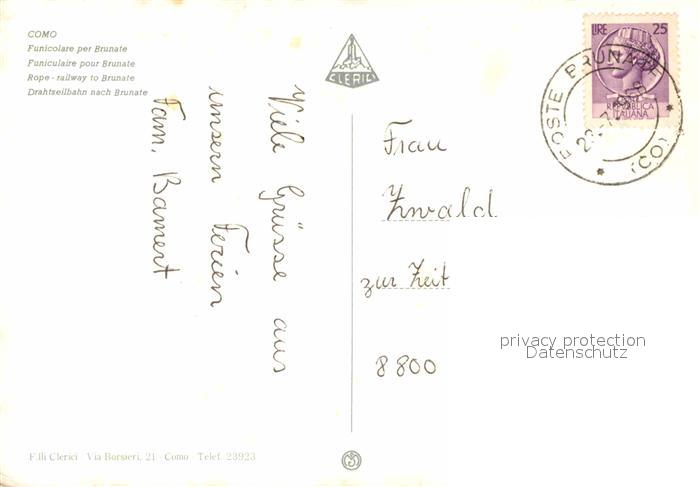 COMO
Funicolare per Brunate
Funiculaire pour Brunate
Rope - railway to Brunate
Drahtseilbahn nach Brunate
CLERICI
LIRE 25
REPUBBLICA
ITALIANA
POSTE BRUNATE
* (CO) *
Viele Grüsse aus
unsern Ferien
Fam. Bamert
Frau
zur Zeit
8800
privacy protection
Datenschutz
F.lli Clerici - Via Borsieri, 21 - Como - Telef. 23923